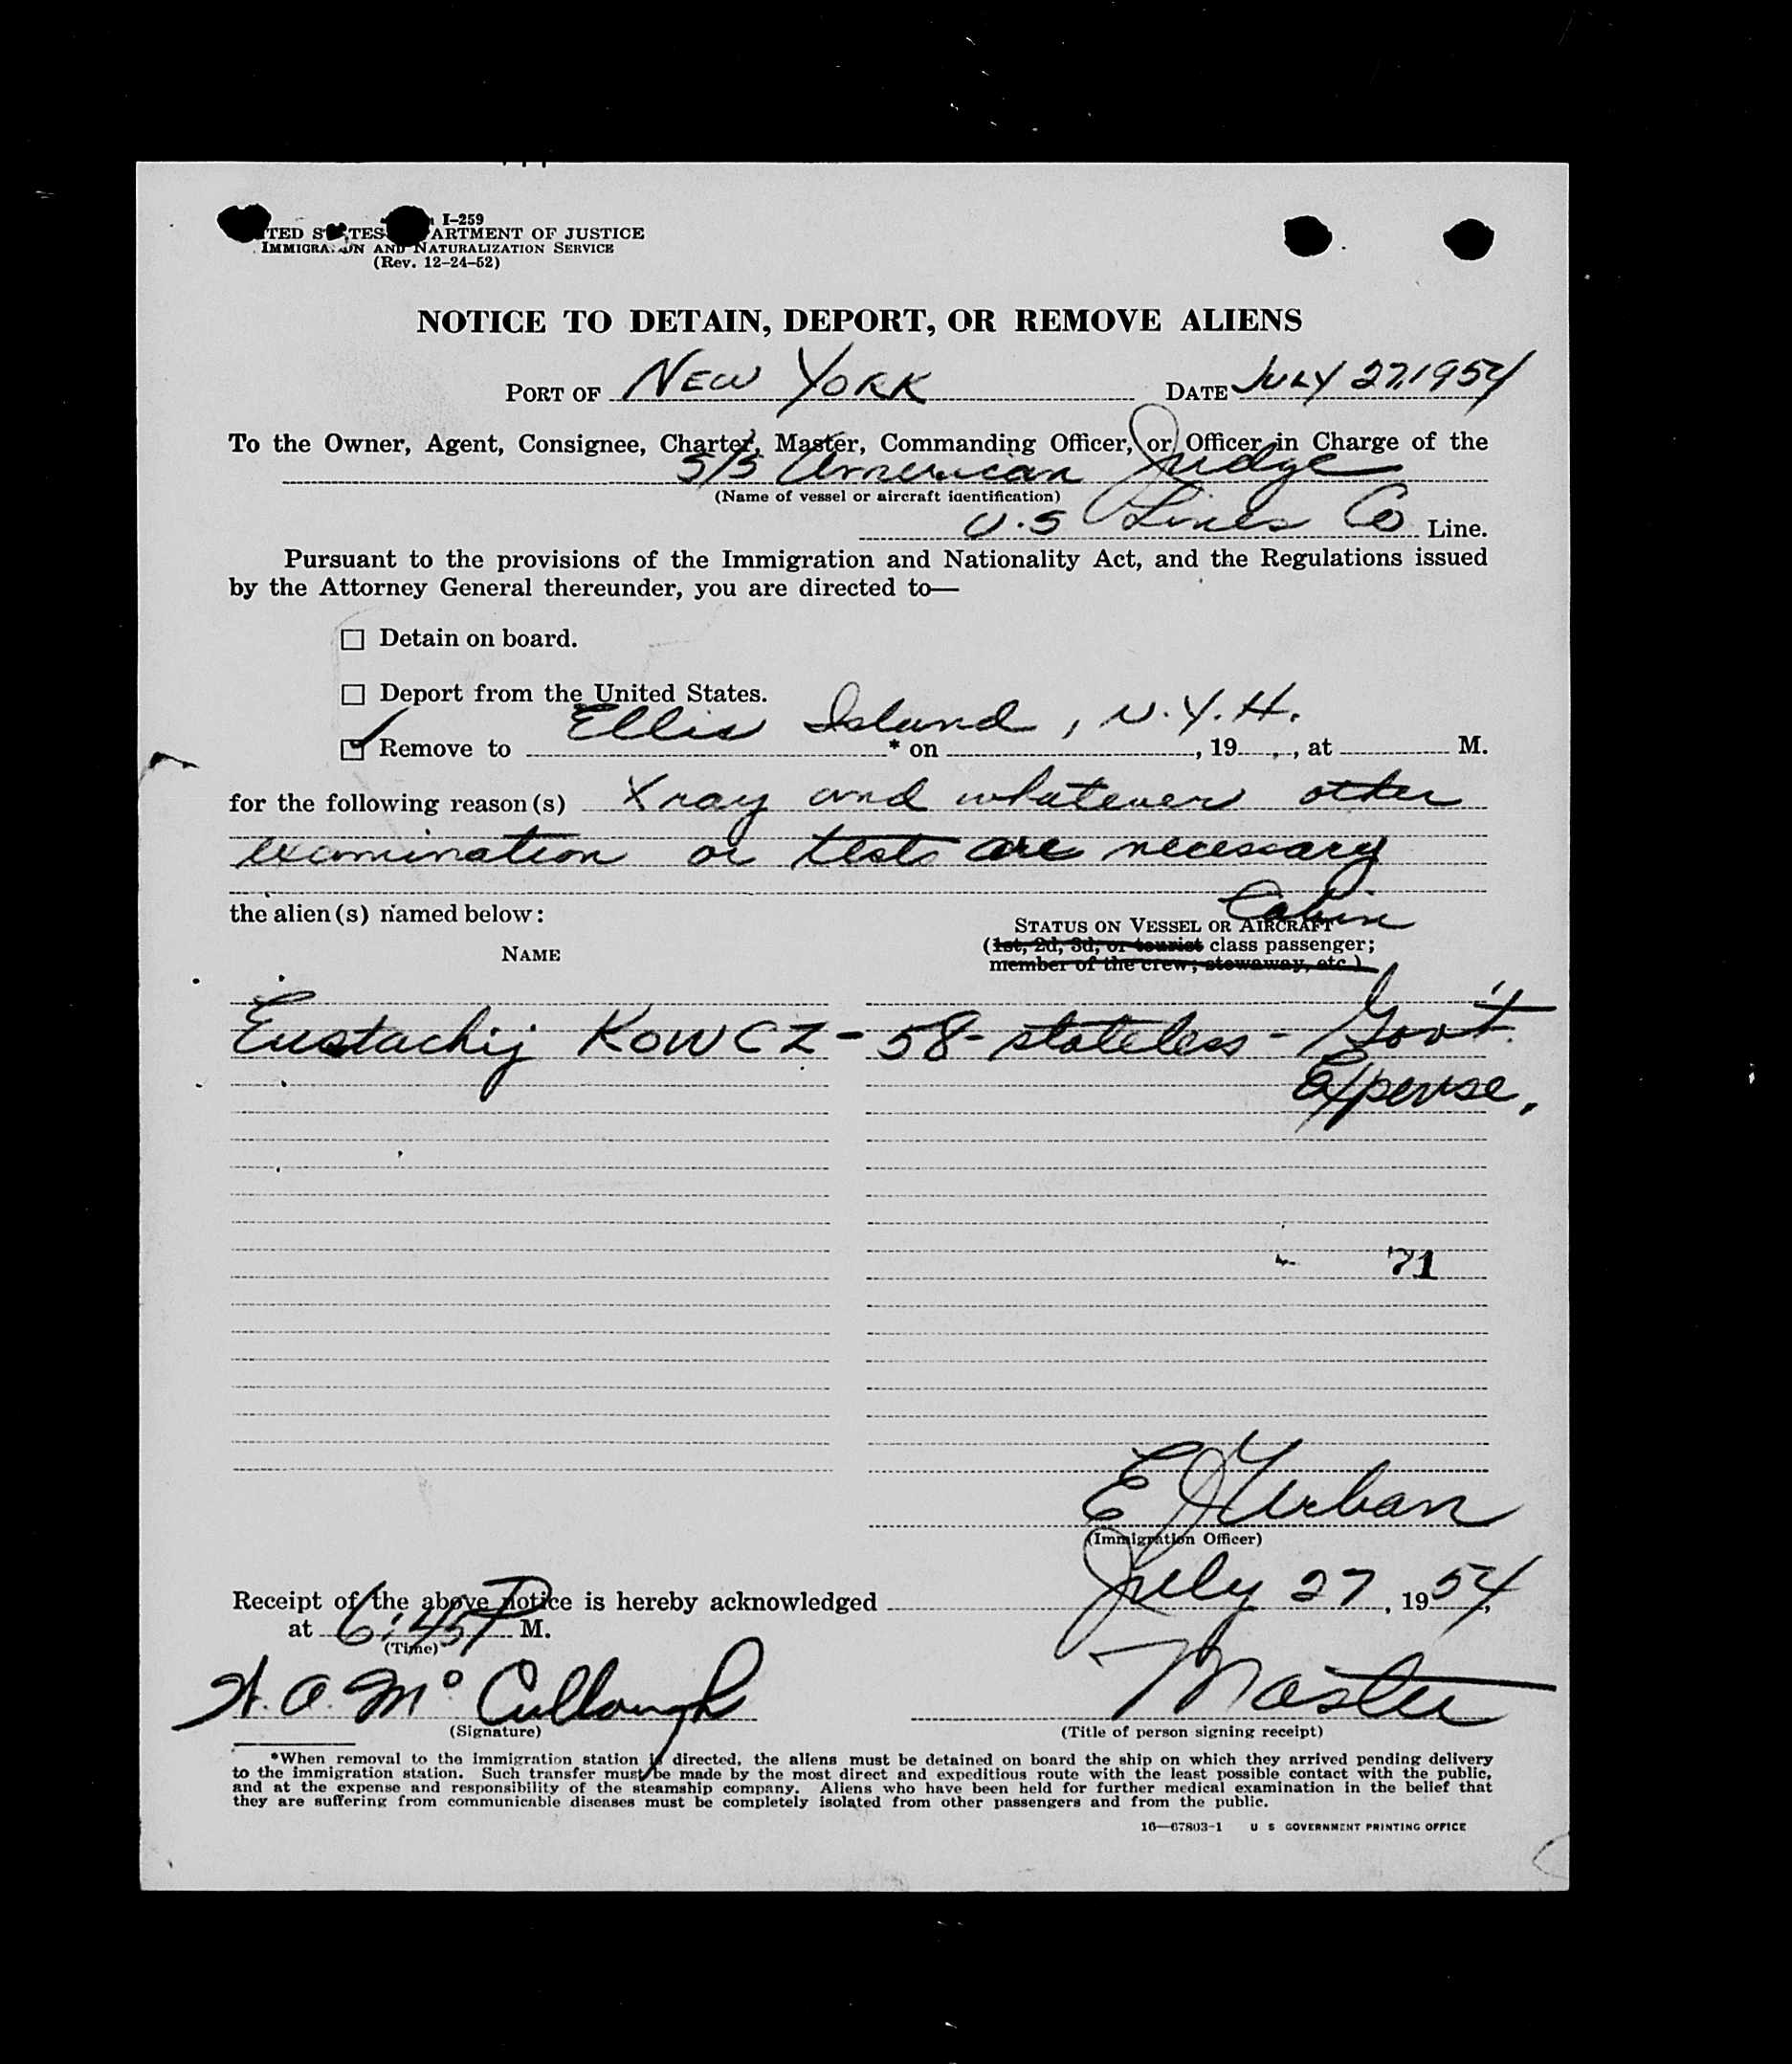 I-259
TED STATES ARTMENT OF JUSTICE
IMMIGRATION AND NATURALIZATION SERVICE
(Rev. 12-24-52)
NOTICE TO DETAIN, DEPORT, OR REMOVE ALIENS
PORT OF NEW YORK DATE JULY 27, 1954
To the Owner, Agent, Consignee, Charter, Master, Commanding Officer, or Officer in Charge of the
S/S American Judge
(Name of vessel or aircraft identification)
U.S Lines Co Line.
Pursuant to the provisions of the Immigration and Nationality Act, and the Regulations issued
by the Attorney General thereunder, you are directed to—
☐ Detain on board.
☐ Deport from the United States.
☑ Remove to Ellis Island, N.Y.H. * on , 19 , at M.
for the following reason(s) Xray and whatever other
examination or tests are necessary
the alien(s) named below:
Cabin
STATUS ON VESSEL OR AIRCRAFT
NAME
(1st, 2d, 3d, or tourist class passenger;
member of the crew; stowaway, etc.)
Eustachij KOWCZ - 58 - stateless - Gov't.
Expense.
71
E J Urban
(Immigration Officer)
Receipt of the above notice is hereby acknowledged July 27, 1954,
at 6:45 P M.
(Time)
H. A. Mc Cullough Master
(Signature) (Title of person signing receipt)
*When removal to the immigration station is directed, the aliens must be detained on board the ship on which they arrived pending delivery
to the immigration station. Such transfer must be made by the most direct and expeditious route with the least possible contact with the public,
and at the expense and responsibility of the steamship company. Aliens who have been held for further medical examination in the belief that
they are suffering from communicable diseases must be completely isolated from other passengers and from the public.
16—67803-1 U S GOVERNMENT PRINTING OFFICE